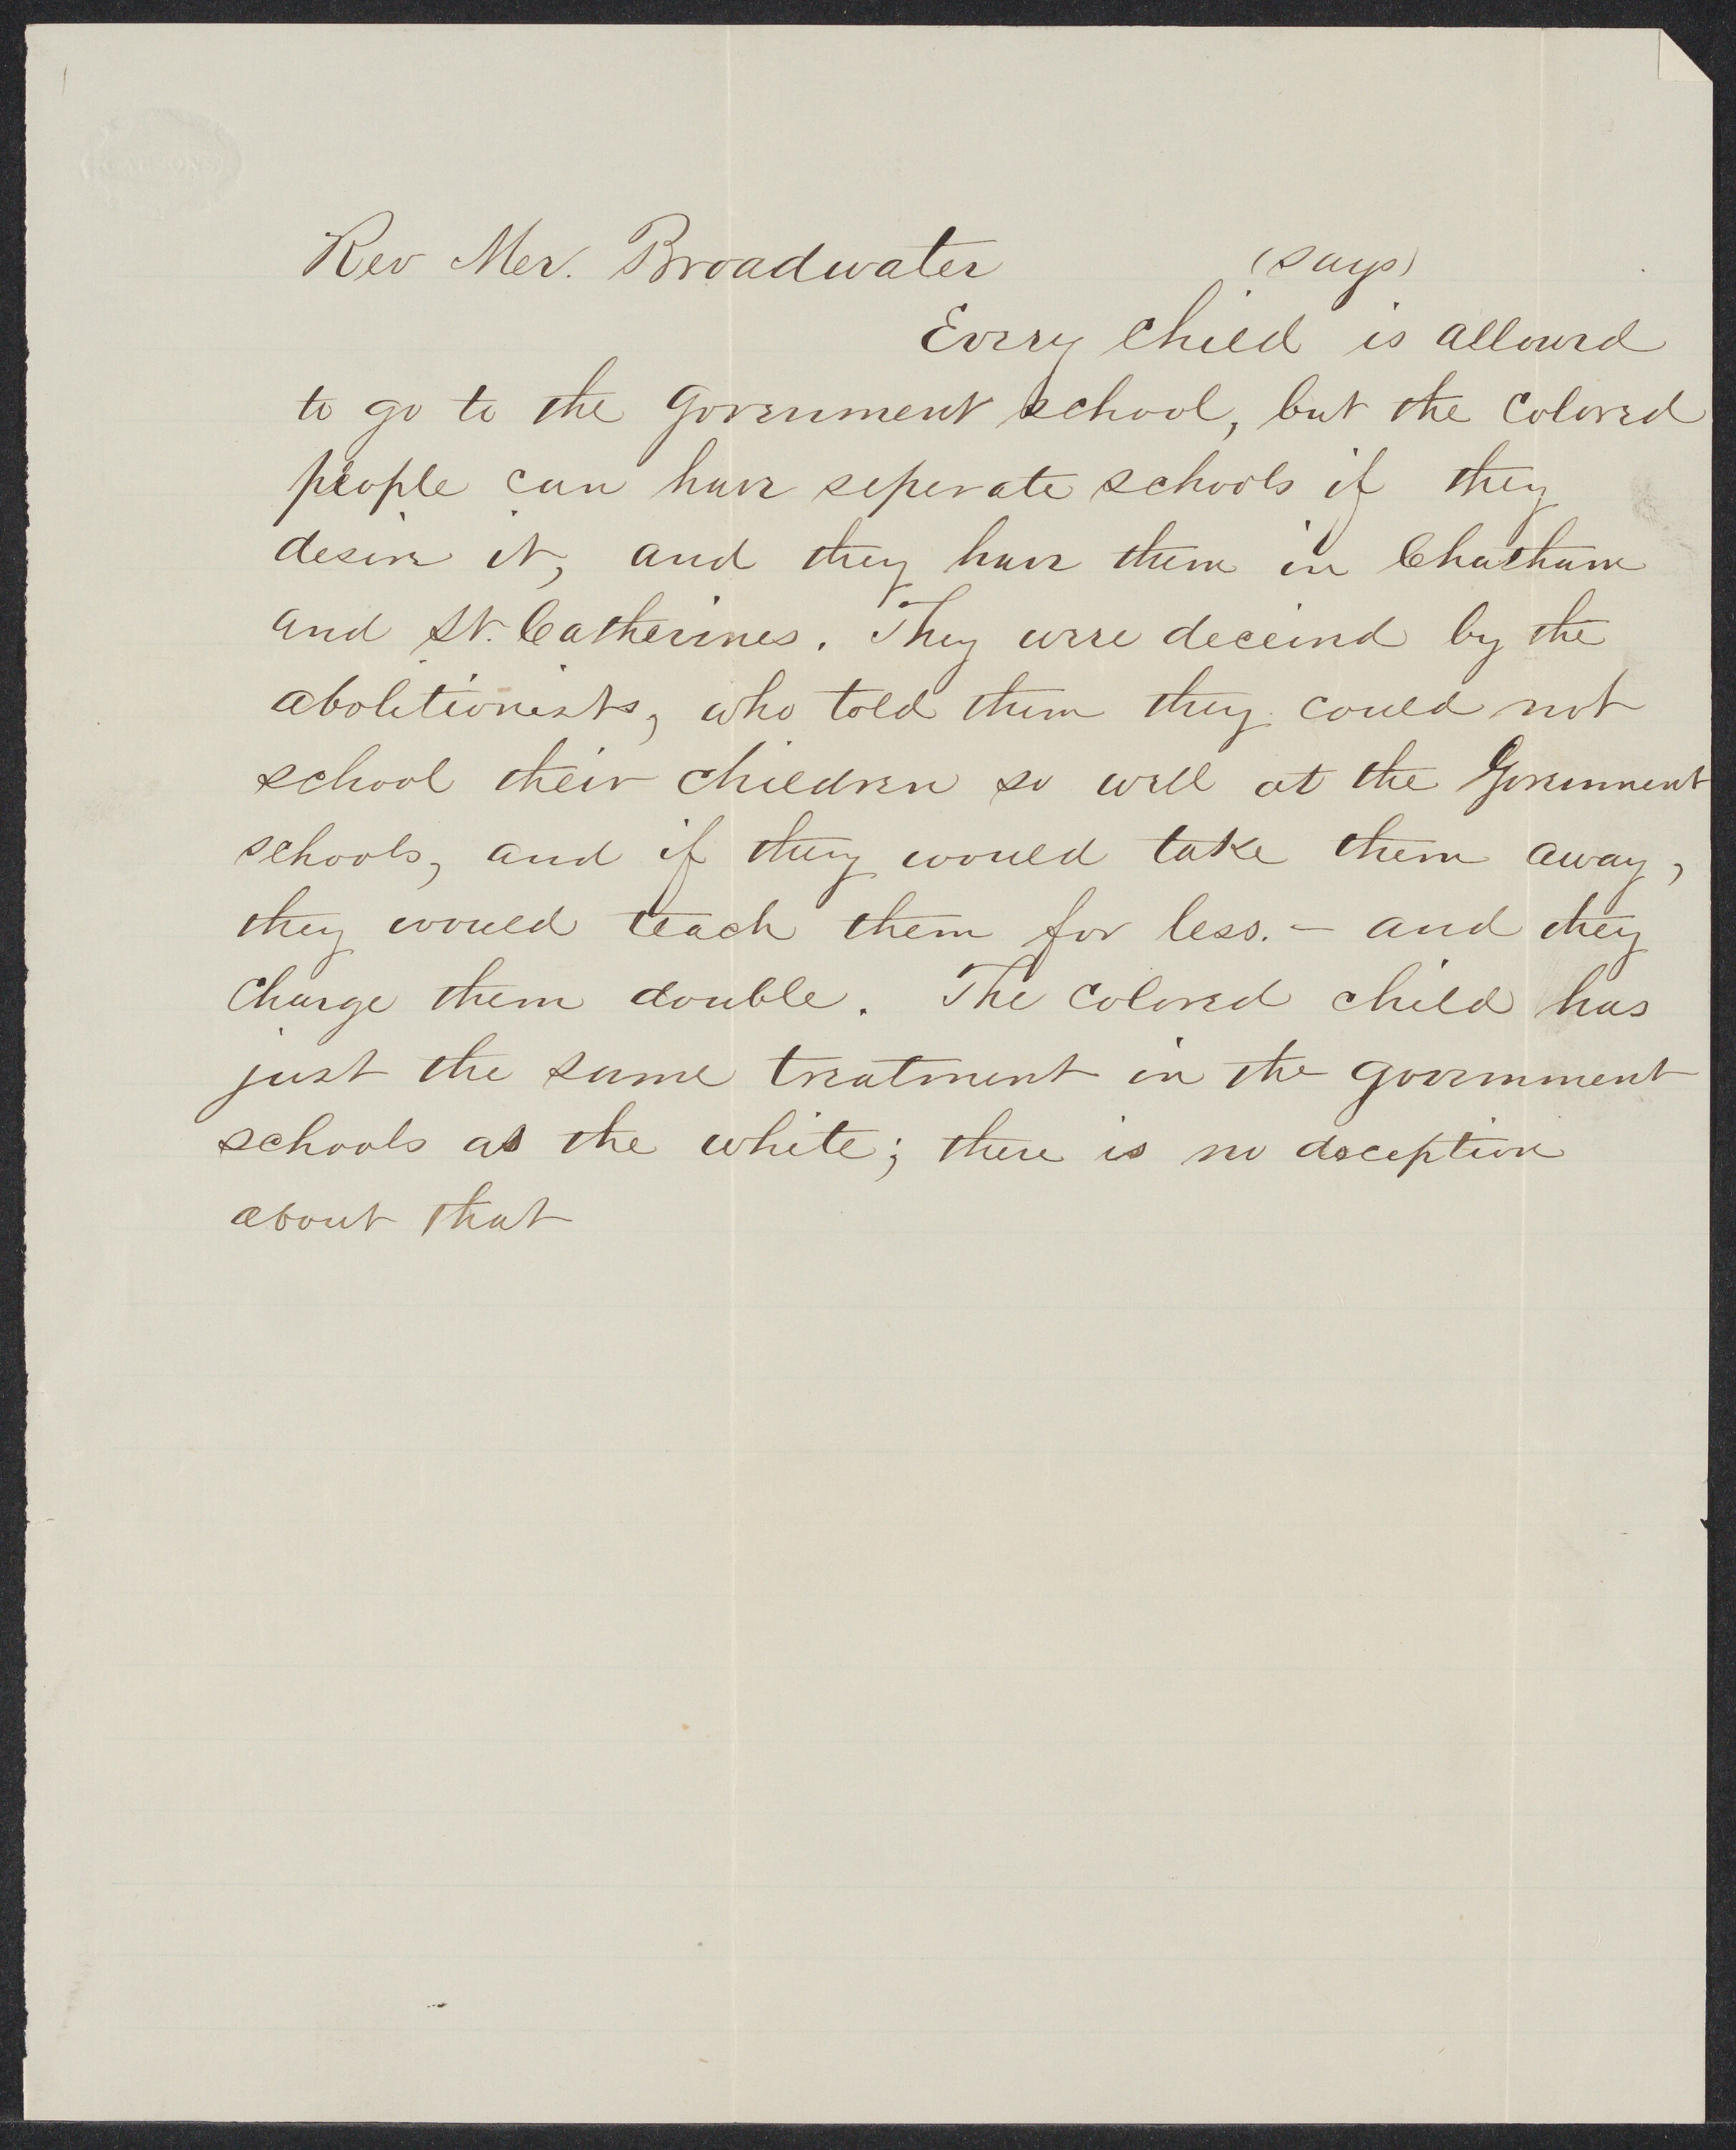 Rev Mer. Broadwater (says)
Every child is allowed
to go to the Government school, but the colored
people can have seperate schools if they
desire it, and they have them in Chatham
and St. Catherines. They were deceived by the
abolitionists, who told them they could not
school their children so well at the Government
schools, and if they would take them away,
they would teach them for less. — and they
charge them double. The colored child has
just the same treatment in the government
schools as the white; there is no deception
about that